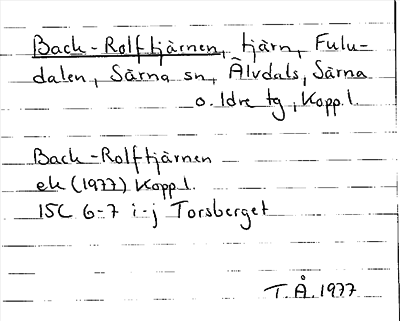 Back-Rolftjärnen, tjärn, Fulu-
dalen, Särna sn, Älvdals, Särna
o. Idre tg, Kopp.l.
Back-Rolftjärnen
ek (1977) Kopp.l.
15C 6-7 i-j Torsberget
T.Å. 1977